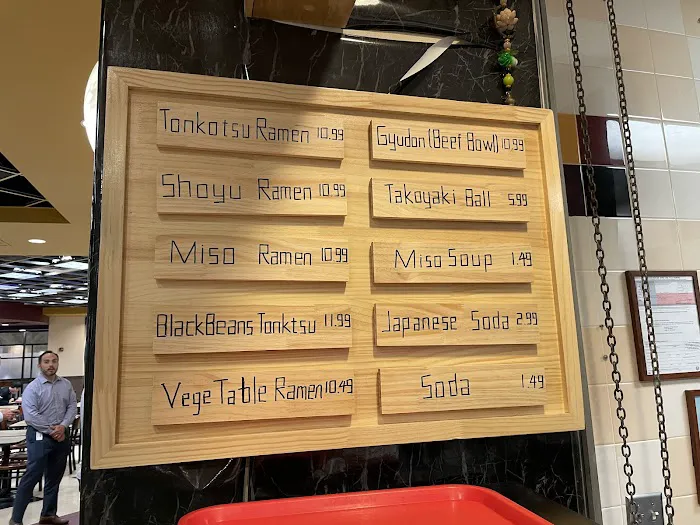 Tonkotsu Ramen 10.99
Shoyu Ramen 10.99
Miso Ramen 10.99
BlackBeans Tonktsu 11.99
Vege Table Ramen 10.49
Gyudon (Beef Bowl) 10.99
Takoyaki Ball 5.99
Miso Soup 1.49
Japanese Soda 2.99
Soda 1.49